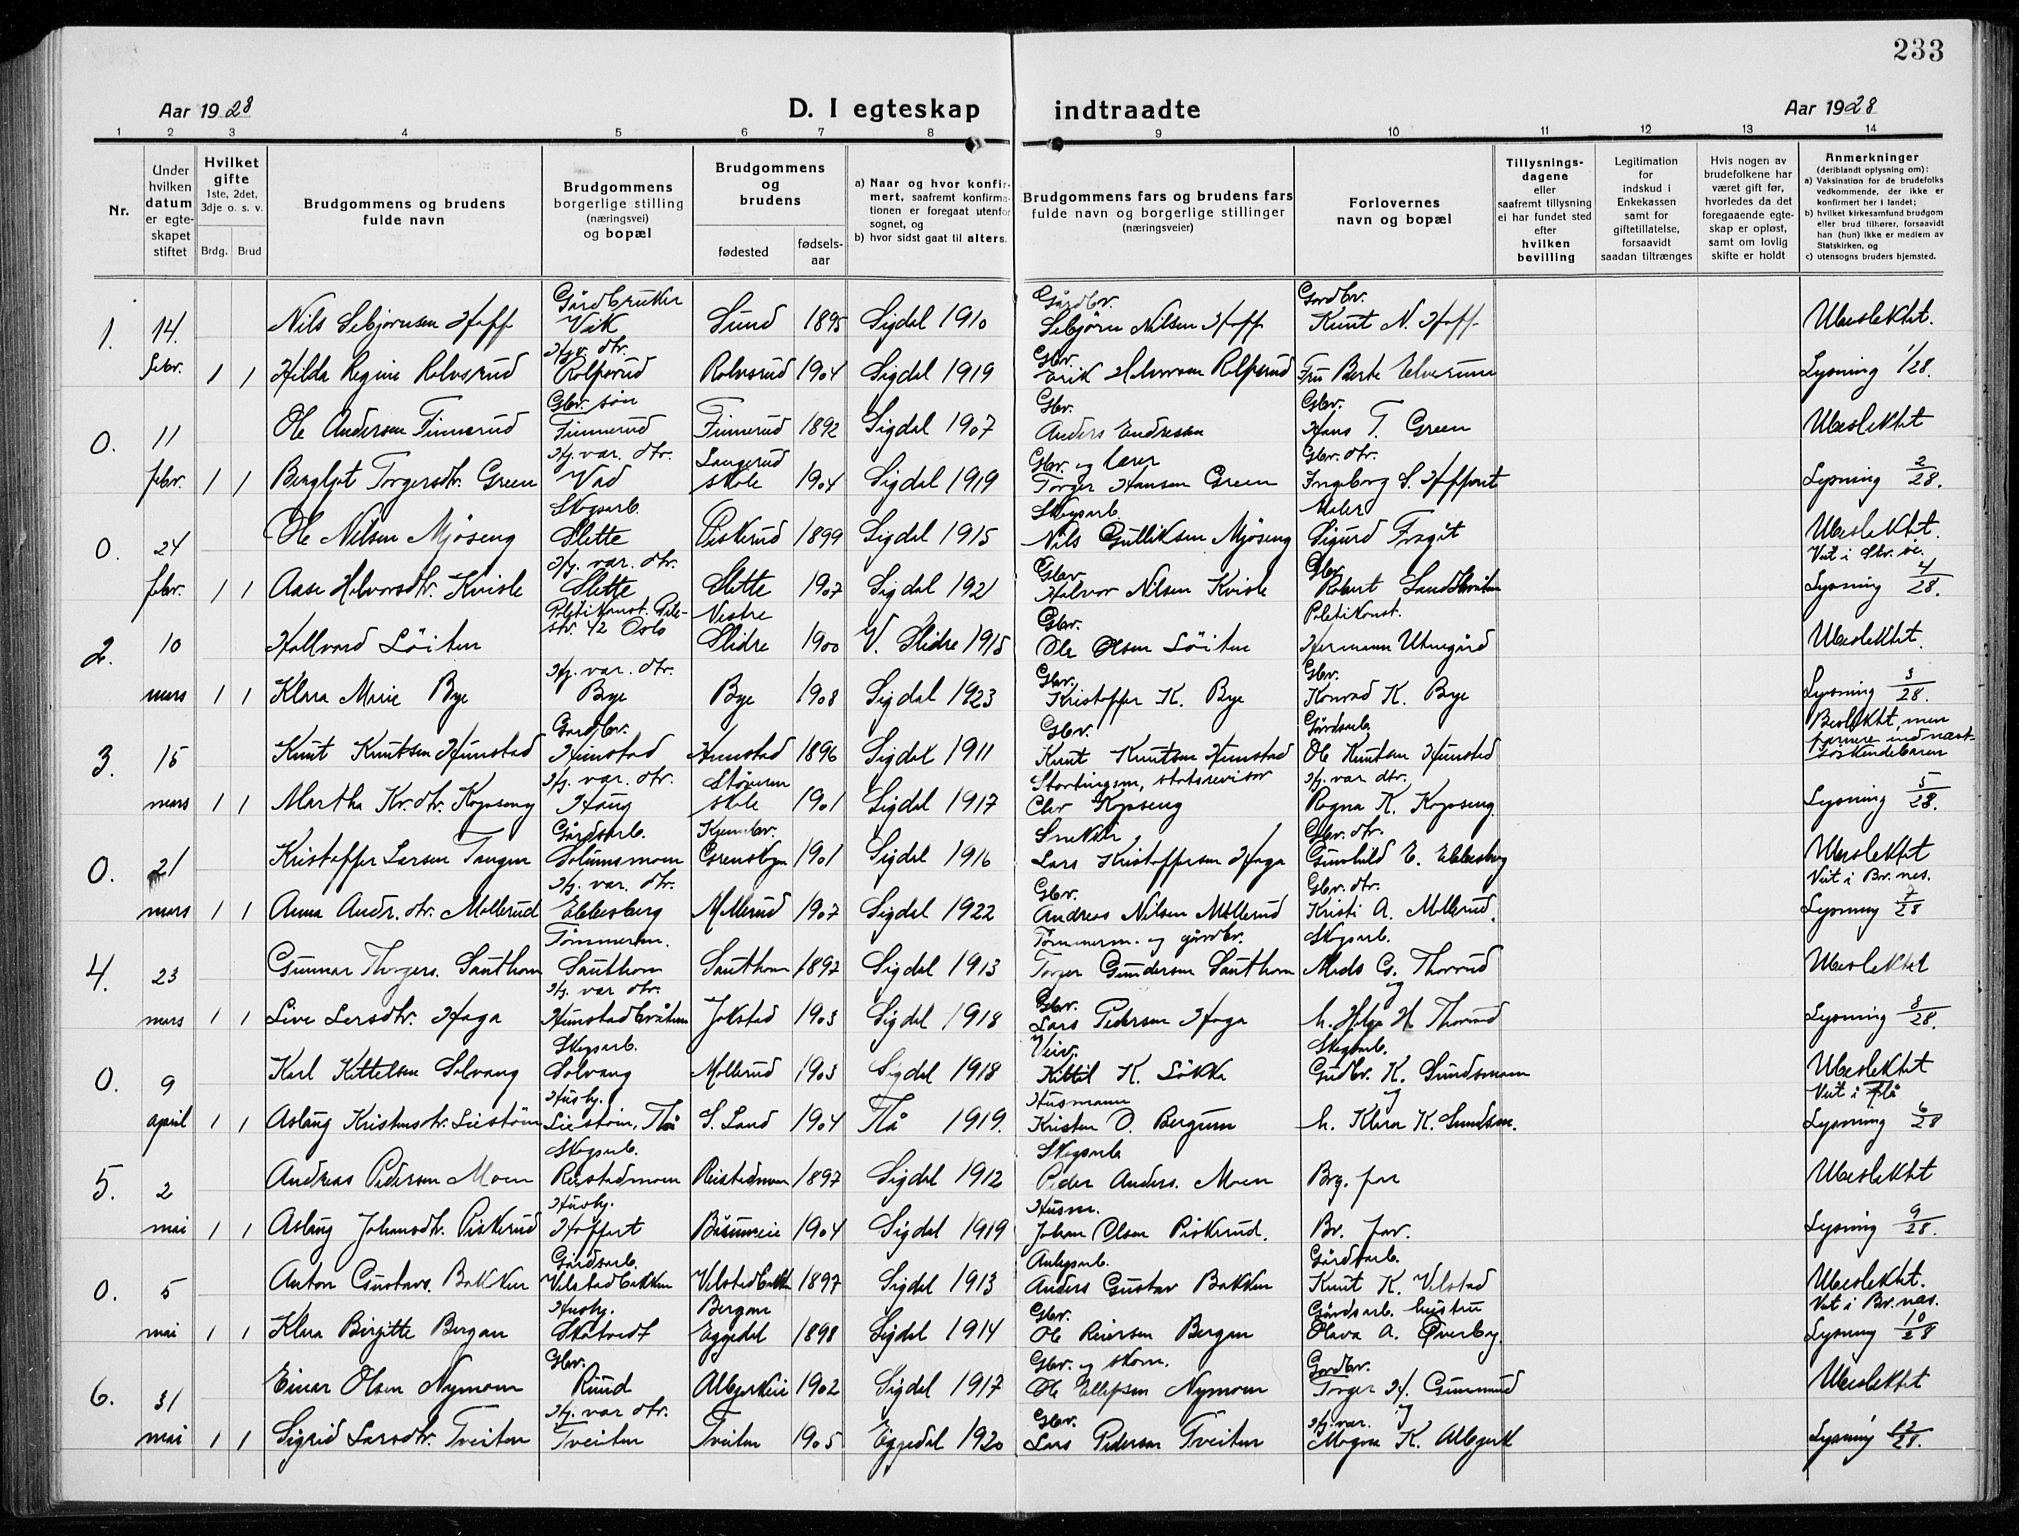 233
Aar 1928
D. I egteskap indtraadte
Aar 1928
1 2 3 4 5 6 7 8 9 10 11 12 13 14
Nr.
Under hvilken datum er egteskapet stiftet
Hvilket gifte
1ste, 2det, 3dje o. s. v.
Brdg. Brud
Brudgommens og brudens fulde navn
Brudgommens borgerlige stilling (næringsvei) og bopæl
Brudgommens og brudens
fødested
fødselsaar
a) Naar og hvor konfirmert, saafremt konfirmationen er foregaat utenfor sognet, og
b) hvor sidst gaat til alters.
Brudgommens fars og brudens fars fulde navn og borgerlige stillinger (næringsveier)
Forlovernes navn og bopæl
Tillysningsdagene eller saafremt tillysning ei har fundet sted efter hvilken bevilling
Legitimation for indskud i Enkekassen samt for giftetillatelse, forsaavidt saadan tiltrænges
Hvis nogen av brudefolkene har været gift før, hvorledes da det foregaaende egteskap er opløst, samt om lovlig skifte er holdt
Anmerkninger
(deriblandt oplysning om):
a) Vaksination for de brudefolks vedkommende, der ikke er konfirmert her i landet;
b) hvilket kirkesamfund brudgom eller brud tilhører, forsaavidt han (hun) ikke er medlem av Statskirken, og
c) utensogns bruders hjemsted.
Gårdbruker Gårdbr. Gardbr.
1. 14. Nils Sebjørnsen Hoff Vik Sund 1895 Sigdal 1910 Sebjørn Nilsen Hoff Knut N. Hoff Ubeslektet.
Hjv. dtr. Gbr.
febr. 1 1 Hilda Regine Rolvsrud Rolfsrud Rolvsrud 1904 Sigdal 1919 Erik Halvorsen Rolfsrud Fru Berte Elverum Lysning 1/28.
Gbr. søn Gbr. Gbr.
0. 11 Ole Andersen Finnerud Finnerud Finnerud 1892 Sigdal 1907 Anders Endresen Hans T. Green Ubeslektet
Hj. var. dtr. Langerud Gbr. og lærer Gbr. dtr.
febr. 1 1 Bergljot Torgersdtr. Green Vad skole 1904 Sigdal 1919 Torger Hansen Green Ingeborg S. Hoffart Lysning 2/28.
Skogsarb. Skogsarb. Maler
0. 24 Ole Nilsen Mjøseng Slette Piskerud 1899 Sigdal 1915 Nils Gulliksen Mjøseng Sigurd Fragåt Ubeslektet.
Hj. var. dtr. Gbr. Gbr. Viet i Sbr. sc.
febr. 1 1 Aase Halvorsdtr. Kvisle Slette Slette 1907 Sigdal 1921 Halvor Nilsen Kvisle Robert Sandsbråten Lysning 4/28.
Politikonst. Pile- Vestre Gbr. Politikonst.
2. 10 Hallvard Løiten str. 42 Oslo Slidre 1900 V. Slidre 1915 Ole Olsen Løiten Hermann Utnegård Ubeslektet.
Hj. var. dtr. Gbr. Gbr.
mars 1 1 Klara Marie Bye Bye Bye 1908 Sigdal 1923 Kristoffer K. Bye Konrad K. Bye Lysning 3/28.
Gardbr. Gbr. Gårdsarb. Beslektet, men
3. 15 Knut Knutsen Hunstad Hunstad Hunstad 1896 Sigdal 1911 Knut Knutsen Hunstad Ole Knutsen Hunstad fjernere end næstsøskendebarn
Hj. var. dtr. Stortingsm, statsrevisor Hj. var dtr.
mars 1 1 Martha Kr. dtr. Kopseng Haug skole 1901 Sigdal 1917 Olav Kopseng Ragna K. Kopseng. Lysning 5/28.
Gårdsarb. Snekker Gbr. dtr.
0. 21 Kristoffer Larsen Tangen Solumsmoen 1901 Sigdal 1916 Lars Kristoffersen Haga Gunhild E. Ebbesberg Ubeslektet
Hj. var. dtr. Gbr. Gbr. dtr. Viet i Br. nes.
mars 1 1 Anna Andr. dtr. Mollerud Ebbesberg Mollerud 1907 Sigdal 1922 Andreas Nilsen Mollerud Kristi A. Mollerud. Lysning 7/28
Tømmerm. Tømmerm. og gårdbr. Skogsarb.
4. 23 Gunnar Thorgers. Sauthon Sauthon Sauthon 1892 Sigdal 1913 Torger Gundersen Sauthon Mads G. Thorrud Ubeslektet
Hj. var dtr. Gbr. og
mars 1 1 Live Larsdtr. Haga Hunstadbråten Jokstad 1903 Sigdal 1918 Lars Pedersen Haga h. Helga H. Thorrud Lysning 8/28.
Skogsarb. Veiv. Skogsarb.
0. 9 Karl Kittelsen Solvang Solvang Mollerud 1903 Sigdal 1918 Kittil K. Løkka Gudbr. K. Sundsmoen Ubeslektet
Husbj. Husmann og Viet i Flå
april 1 1 Aslaug Kristensdtr. Liestøen Liestøen, Flå S. Land 1904 Flå 1919. Kristen O. Bergum h. Klara K. Sundsm. Lysning 6/28
Skogsarb. Skogsarb.
5. 2 Andreas Pedersen Moen Reistadmoen Reistadmoen 1897 Sigdal 1912 Peder Anders. Moen Brg. far Ubeslektet
Husbj. Husm.
mai 1 1 Aslaug Johansdtr. Piskerud Hoffart Båsumeie 1904 Sigdal 1919 Johan Olsen Piskerud. Br. far. Lysning 9/28.
Gårdsarb. Anlegsarb. Gårdsarb.
0. 5 Anton Gustavs. Bakken Vilstadbakken Vilstadbakken 1897 Sigdal 1913 Anders Gustav Bakken Knut K. Vilstad Ubeslektet.
Husbj. Bergan Gbr. Gårdsarb. hustru Viet i Br. nas.
mai 1 1 Klara Birgitte Bergan Skatvedt Eggedal 1898 Sigdal 1914 Ole Reiersen Bergan Olava A. Øverby. Lysning 10/28
Gbr. Gbr. og skom. Gardbr.
6. 31 Einar Olsen Nymoen Ruud Albjerkeie 1902 Sigdal 1917 Ole Ellefsen Nymoen Torger H. Gunnerud Ubeslektet
Hj. var dtr. Gbr. Hj. var. og
mai 1 1 Sigrid Larsdtr. Tveiten Tveiten Tveiten 1905 Eggedal 1920 Lars Pedersen Tveiten Magna K. Albjerk Lysning 12/28.